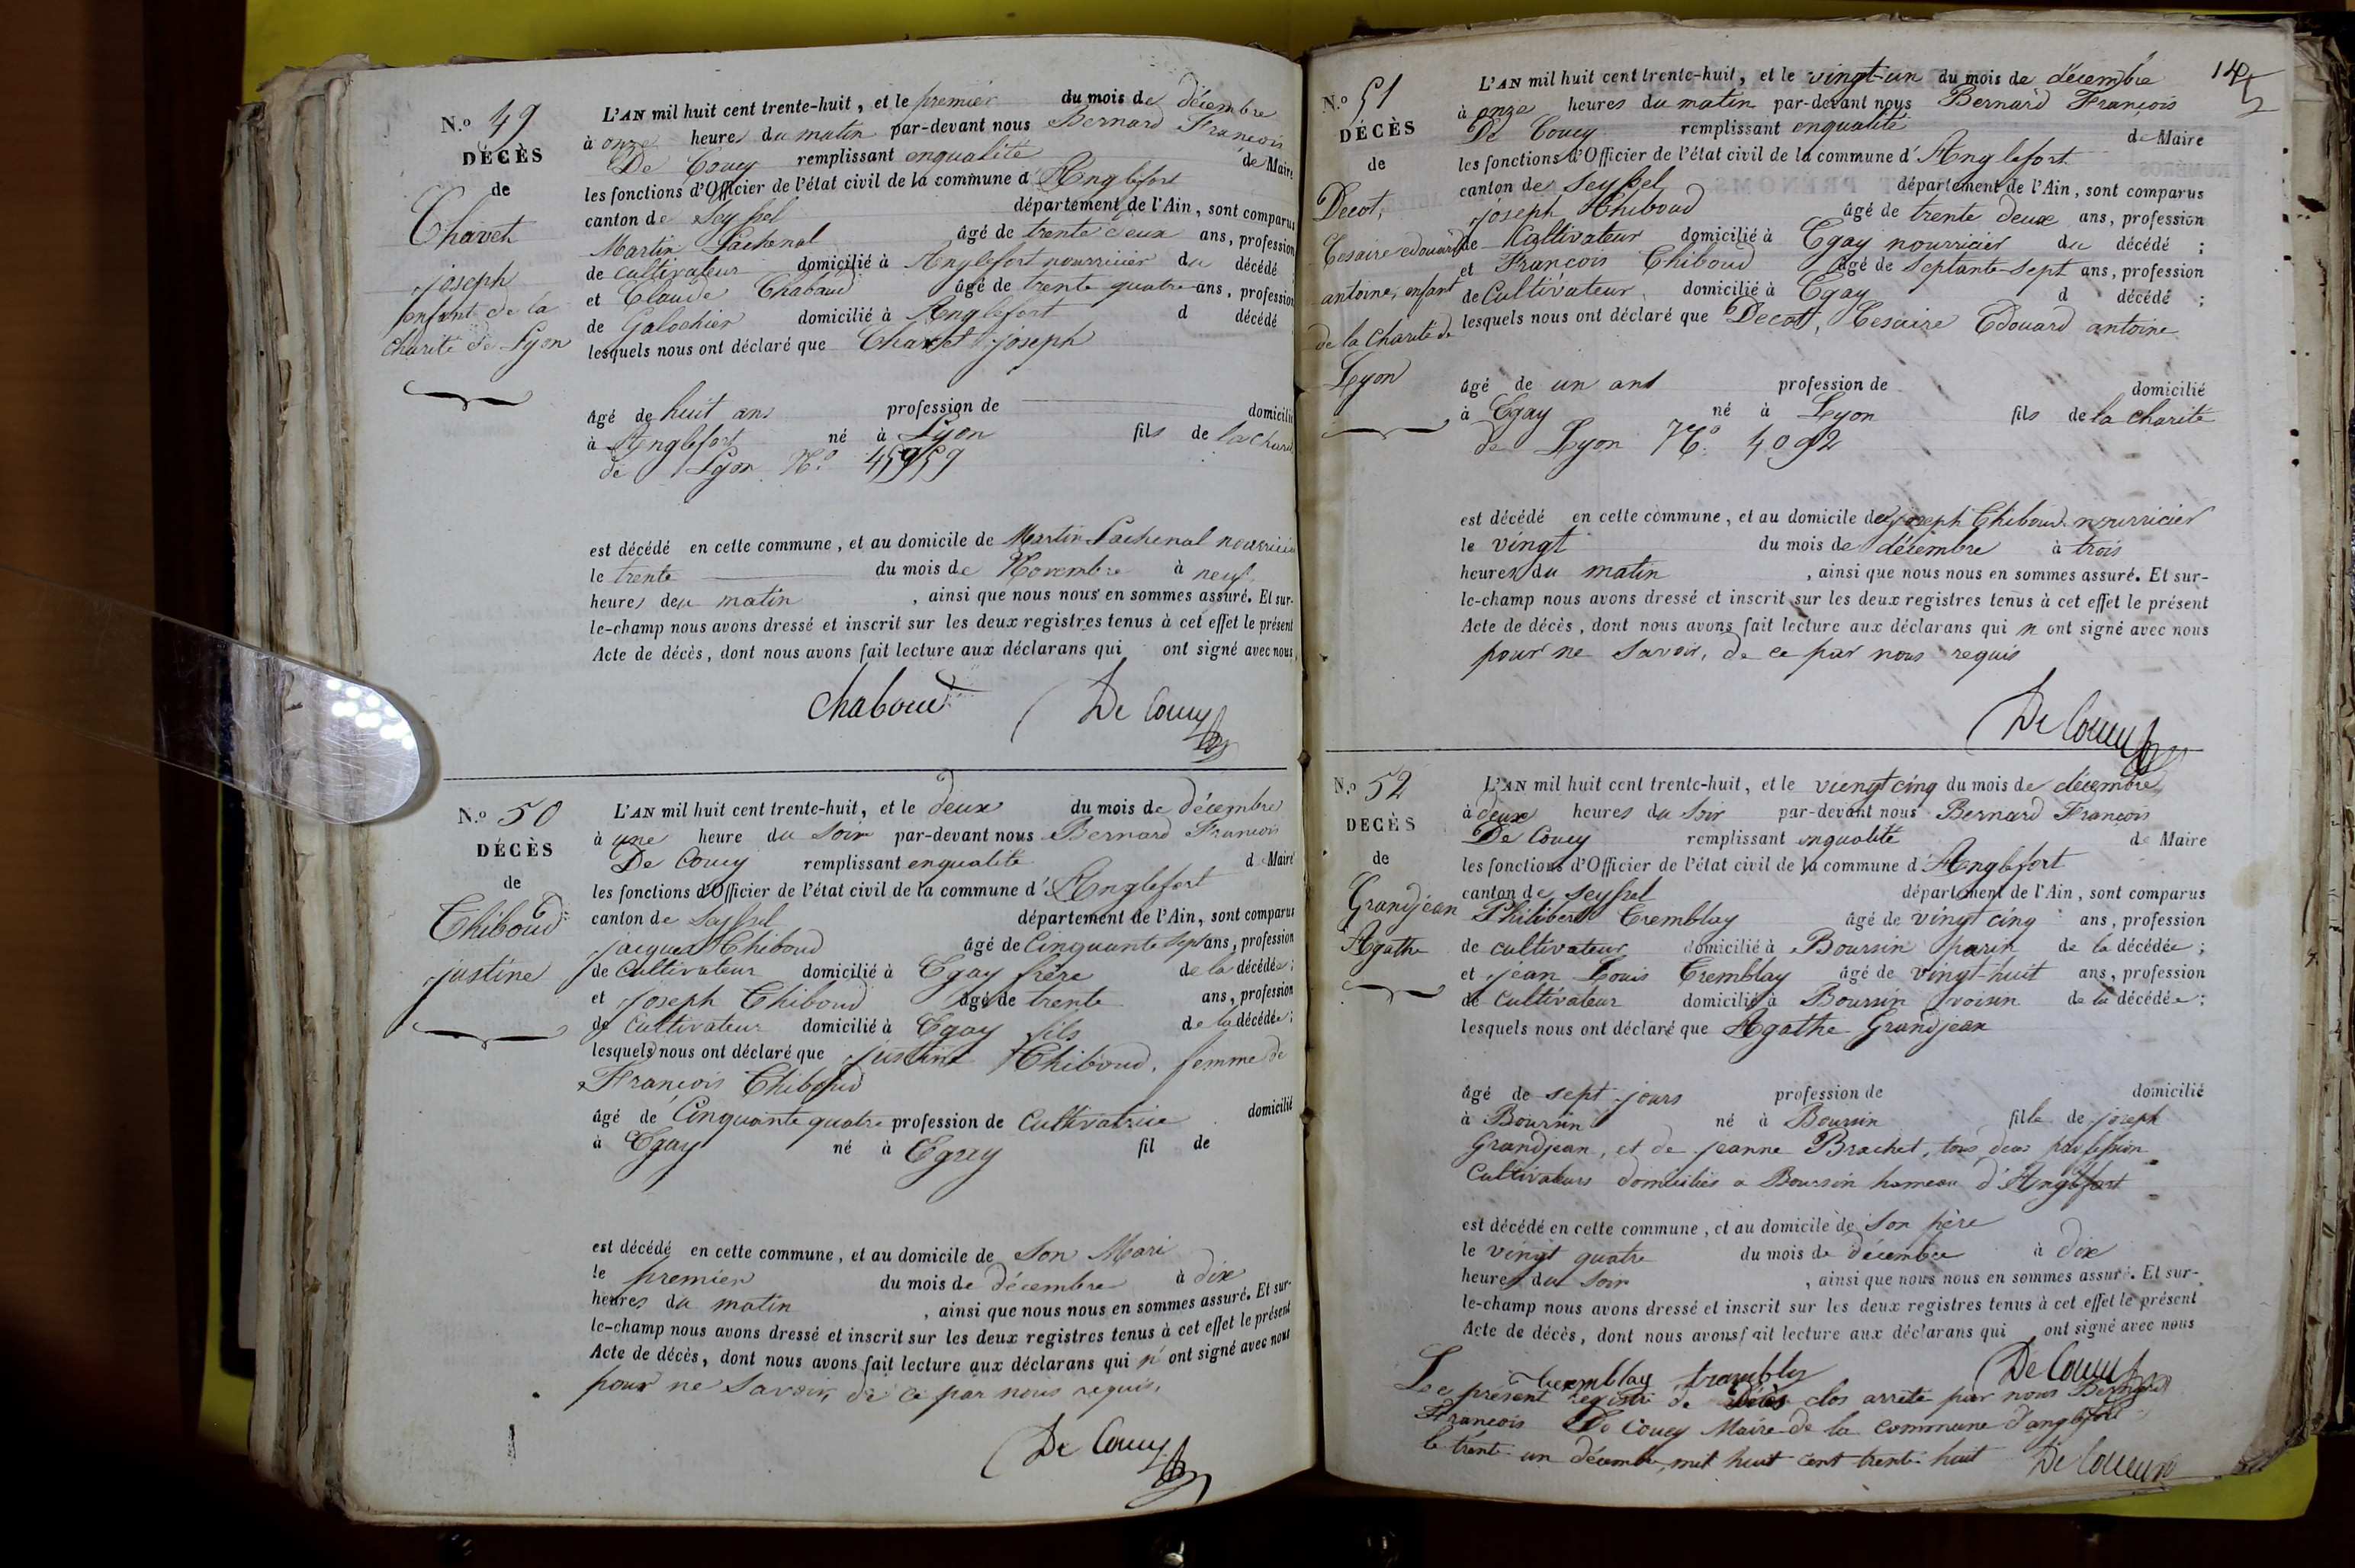 N.o 49
DÉCÈS
de
Chavet
joseph
enfant de la
charité de Lyon
L'AN mil huit cent trente-huit, et le premier du mois de décembre
à onze heures du matin par-devant nous Bernard François
De Coucy remplissant enqualité de Maire
les fonctions d'Officier de l'état civil de la commune d'Anglefort
canton de Seyssel département de l'Ain, sont comparus
Martin Lachenal âgé de trente deux ans, profession
de cultivateur domicilié à Anglefort nourricier du décédé
et Claude Chaboud âgé de trente quatre ans, profession
de Galochier domicilié à Anglefort d décédé
lesquels nous ont déclaré que Chavet joseph
âgé de huit ans profession de domicilié
à Anglefort né à Lyon fils de la charité
de Lyon N.o 45959
est décédé en cette commune, et au domicile de Martin Lachenal nourricier
le trente du mois de Novembre à neuf
heures deu matin , ainsi que nous nous en sommes assuré. Et sur-
le-champ nous avons dressé et inscrit sur les deux registres tenus à cet effet le présent
Acte de décès, dont nous avons fait lecture aux déclarans qui ont signé avec nous,
Chaboud De Coucy
N.o 50
DÉCÈS
de
Thiboud
justine
L'AN mil huit cent trente-huit, et le deux du mois de décembre
à une heure du soir par-devant nous Bernard François
De Coucy remplissant enqualité d Maire
les fonctions d'Officier de l'état civil de la commune d'Anglefort
canton de Seyssel département de l'Ain, sont comparus
jacques Thiboud âgé de Cinquante sept ans, profession
de Cultivateur domicilié à Egay frère de la décédée;
et joseph Thiboud âgé de trente ans, profession
de Cultivateur domicilié à Egay fils de la décédée;
lesquels nous ont déclaré que justine Thiboud, femme de
François Thiboud
âgé de Cinquante quatre profession de Cultivatrice domicilié
à Egay né à Egay fil de
est décédé en cette commune, et au domicile de Son Mari
le premier du mois de décembre à dix
heures du matin , ainsi que nous nous en sommes assuré. Et sur-
le-champ nous avons dressé et inscrit sur les deux registres tenus à cet effet le présent
Acte de décès, dont nous avons fait lecture aux déclarans qui n'ont signé avec nous
pour ne Savoir, de ce par nous requis.
De Coucy
145
N.o 51
DÉCÈS
de
Decot,
Cesaire edouard
antoine, enfant
de la charité de
Lyon
L'AN mil huit cent trente-huit, et le vingt-un du mois de décembre
à onze heures du matin par-devant nous Bernard François
De Coucy remplissant enqualité de Maire
les fonctions d'Officier de l'état civil de la commune d'Anglefort
canton de Seyssel département de l'Ain, sont comparus
joseph Thiboud âgé de trente deux ans, profession
de Cultivateur domicilié à Egay nourricier du décédé;
et François Thiboud âgé de Septante-sept ans, profession
de Cultivateur domicilié à Egay d décédé;
lesquels nous ont déclaré que Decot, Cesaire Edouard antoine
âgé de un ans profession de domicilié
à Egay né à Lyon fils de la charité
de Lyon N.o 4092
est décédé en cette commune, et au domicile de joseph Thiboud nourricier
le vingt du mois de décembre à trois
heures du matin , ainsi que nous nous en sommes assuré. Et sur-
le-champ nous avons dressé et inscrit sur les deux registres tenus à cet effet le présent
Acte de décès, dont nous avons fait lecture aux déclarans qui n ont signé avec nous
pour ne Savoir, de ce par nous requis
De Coucy
N.o 52
DECÈS
de
Grandjean
Agathe
L'AN mil huit cent trente-huit, et le viengt cinq du mois de décembre
à deux heures du Soir par-devant nous Bernard François
De Coucy remplissant enqualité de Maire
les fonctions d'Officier de l'état civil de la commune d'Anglefort
canton de Seyssel département de l'Ain, sont comparus
Philibert Tremblay âgé de vingt cinq ans, profession
de cultivateur domicilié à Boursin parin de la décédée;
et jean Louis Tremblay âgé de vingt-huit ans, profession
de Cultivateur domicilié à Boursin voisin de la décédée;
lesquels nous ont déclaré que Agathe Grandjean
âgé de sept jours profession de domicilié
à Boursin né à Boursin fille de joseph
Grandjean, et de jeanne Brachet, tous deux profession
Cultivateurs domiciliés a Boursin hameau d'Anglefort
est décédé en cette commune, et au domicile de Son père
le vingt quatre du mois de décembre à dix
heures du Soir , ainsi que nous nous en sommes assuré. Et sur-
le-champ nous avons dressé et inscrit sur les deux registres tenus à cet effet le présent
Acte de décès, dont nous avons fait lecture aux déclarans qui ont signé avec nous
Tremblay trambley De Coucy
Le présent registre de Décès clos arrêté par nous Bernard
François De Coucy Maire de la commune d'anglefort
le trente-un décembre, mil huit cent trente-huit De Coucy